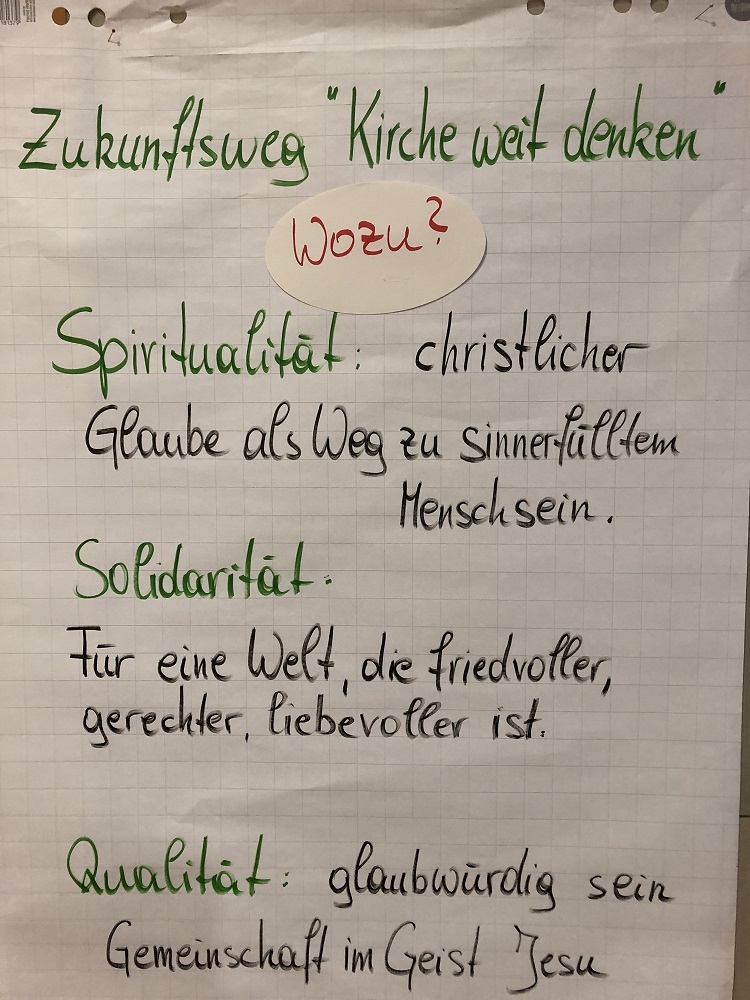 Zukunftsweg "Kirche weit denken"
Wozu?
Spiritualität: christlicher
Glaube als Weg zu sinnerfülltem
Menschsein.
Solidarität:
Für eine Welt, die friedvoller,
gerechter, liebevoller ist.
Qualität: glaubwürdig sein
Gemeinschaft im Geist Jesu